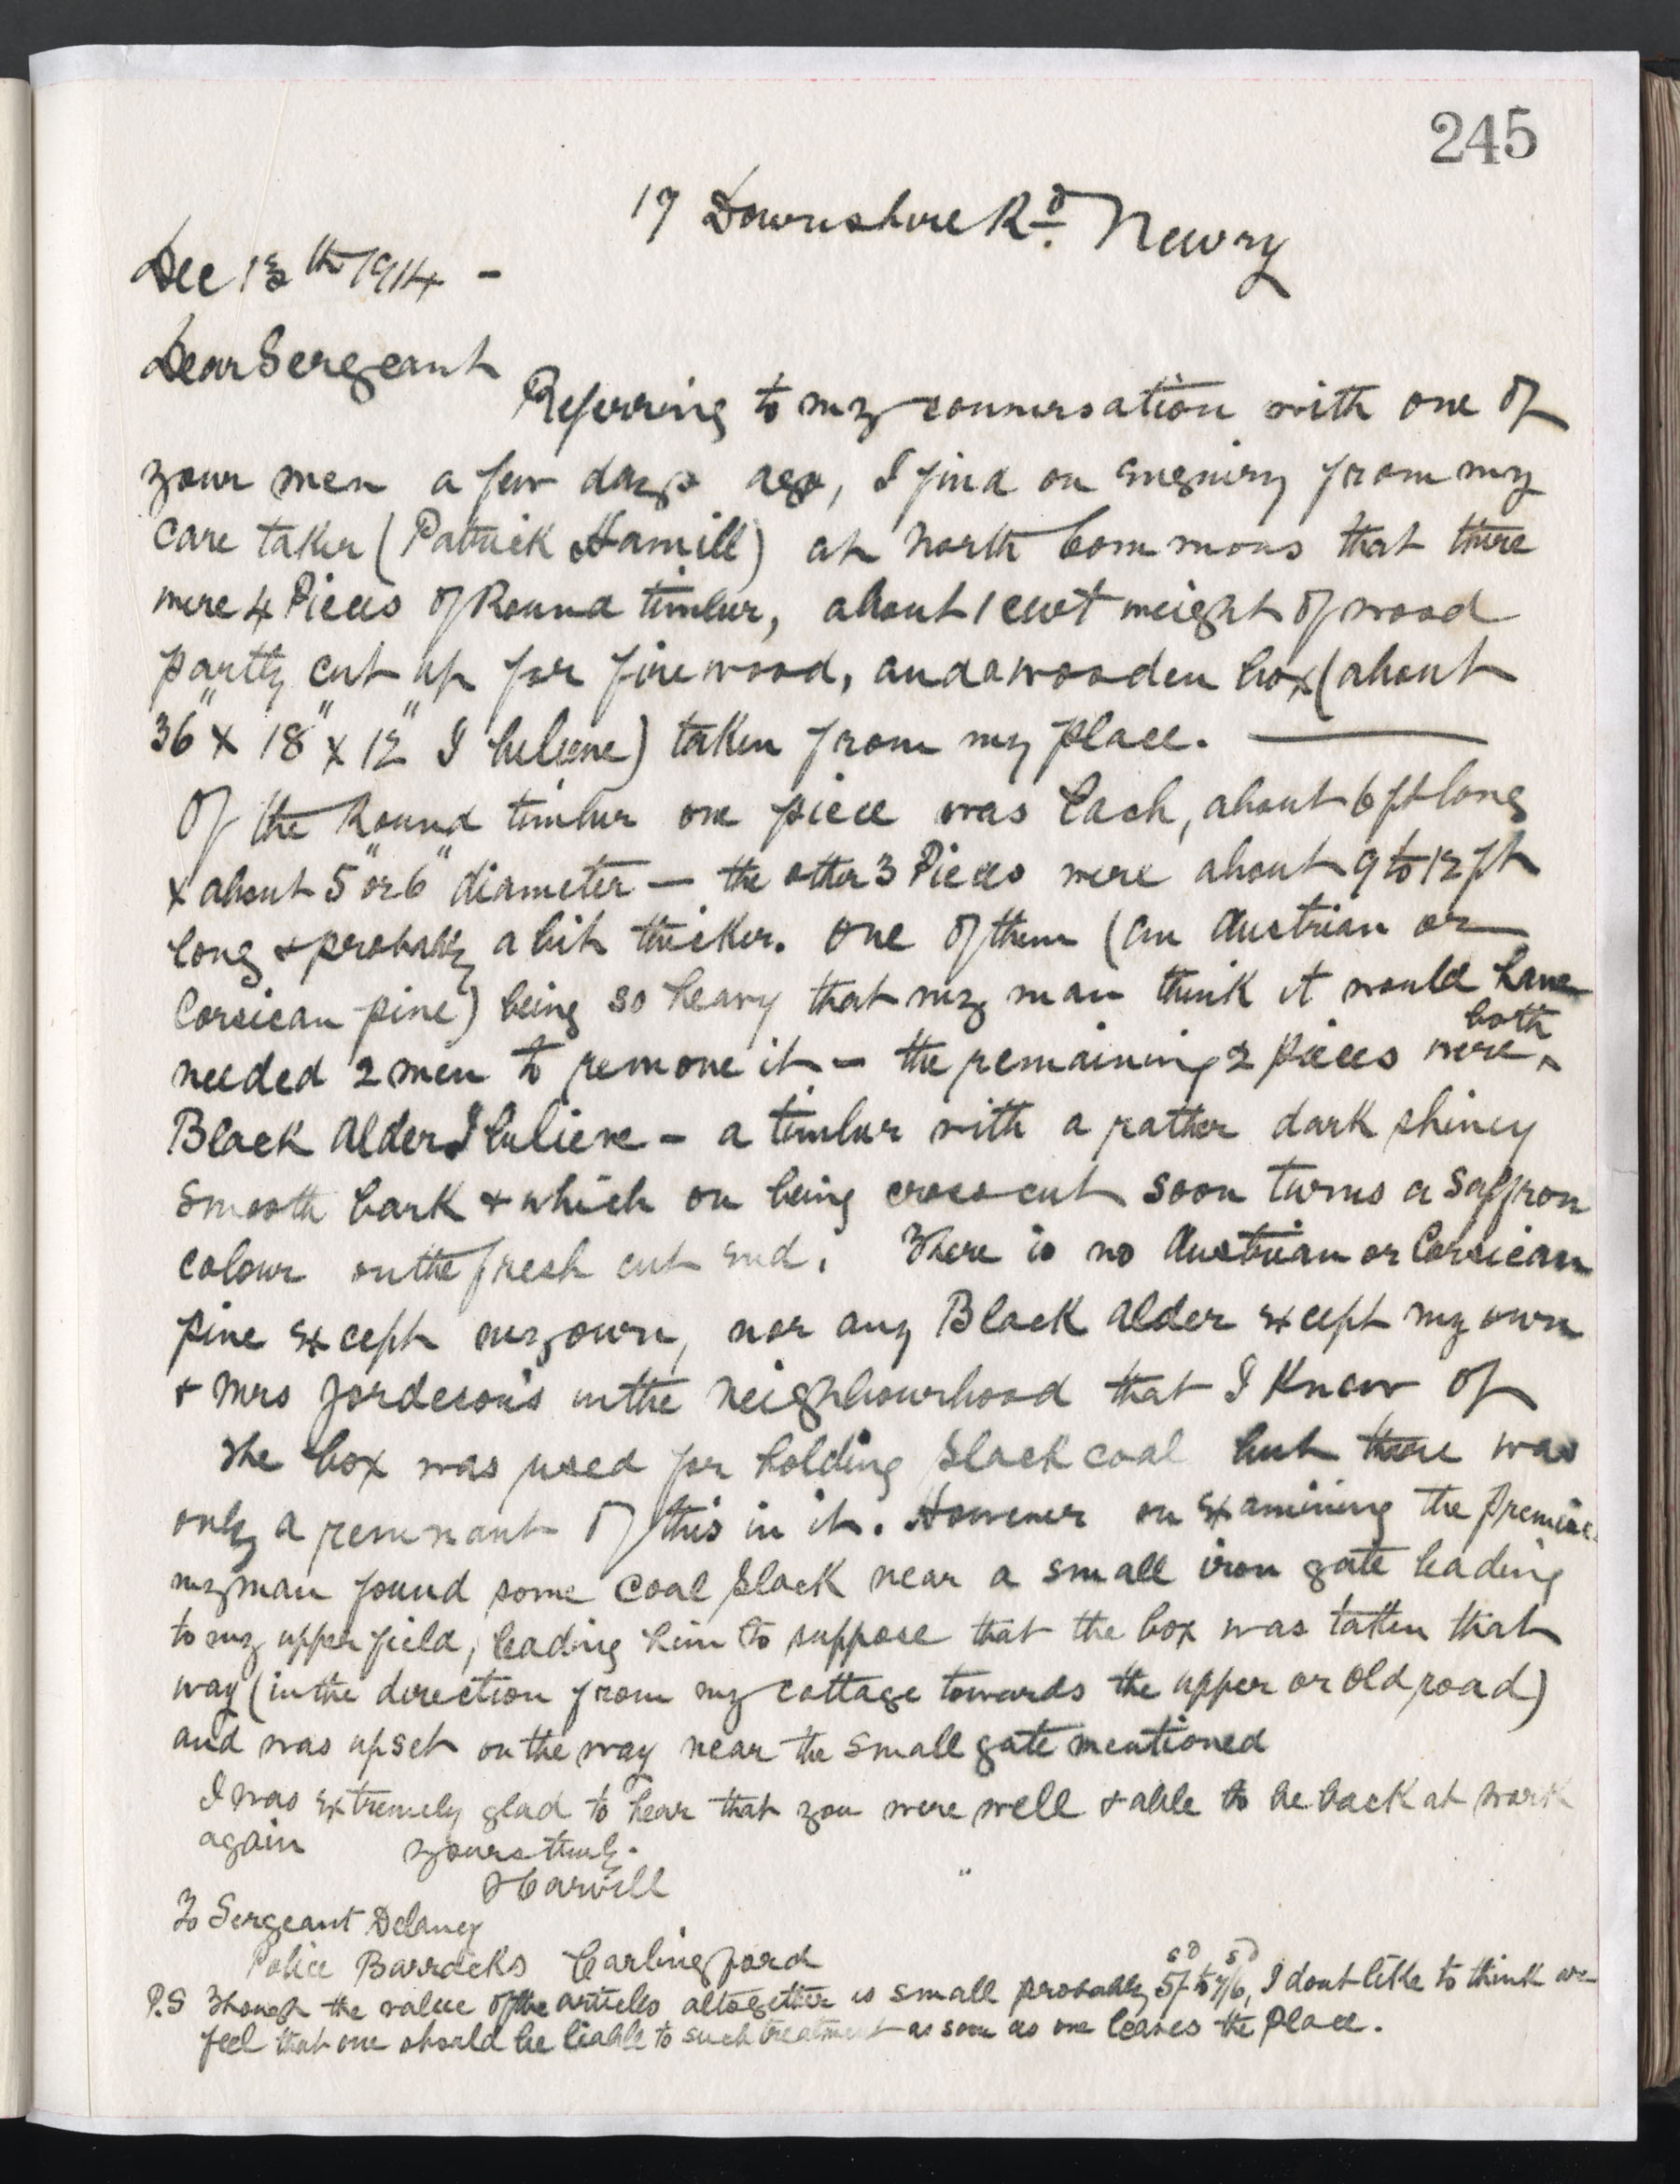 245
17 Downshire Rd. Newry
Dec 13th 1914 -
Dear Sergeant
Referring to my conversation with one of
your men a few days ago, I find on enquiry from my
care taker (Patrick Hamill) at North Commons that there
were 4 Pieces of Round timber, about 1 cwt weight of wood
partly cut up for firewood, and a wooden box (about
36" x 18" x 12" I believe) taken from my place.
Of the Round timber one piece was Lach, about 6 ft long
x about 5" or 6" diameter — the other 3 Pieces were about 9 to 12 ft
long & probably a bit thicker. One of them (an Austrian or
Corsican pine) being so heavy that my man think it would have
needed 2 men to remove it - the remaining 2 pieces were both
Black Alder I believe - a timber with a rather dark shiney
smooth bark & which on being cross cut soon turns a Saffron
colour on the fresh cut end. There is no Austrian or Corsican
pine except my own, nor any Black Alder except my own
& Mrs Jordeson's in the neighbourhood that I know of
The box was used for holding slack coal but there was
only a remnant of this in it. However on examining the premises
my man found some coal slack near a small iron gate leading
to my upper field, leading him to suppose that the box was taken that
way (in the direction from my cottage towards the upper or old road)
and was upset on the way near the small gate mentioned
I was extremely glad to hear that you were well & able to be back at work
again yours truly.
H Carvill
To Sergeant Delaney
Police Barracks Carlingford
P.S Though the value of the articles altogether is small probably 5/- to 7/6, I dont like to think or
feel that one should be liable to such treatment as soon as one leaves the Place.